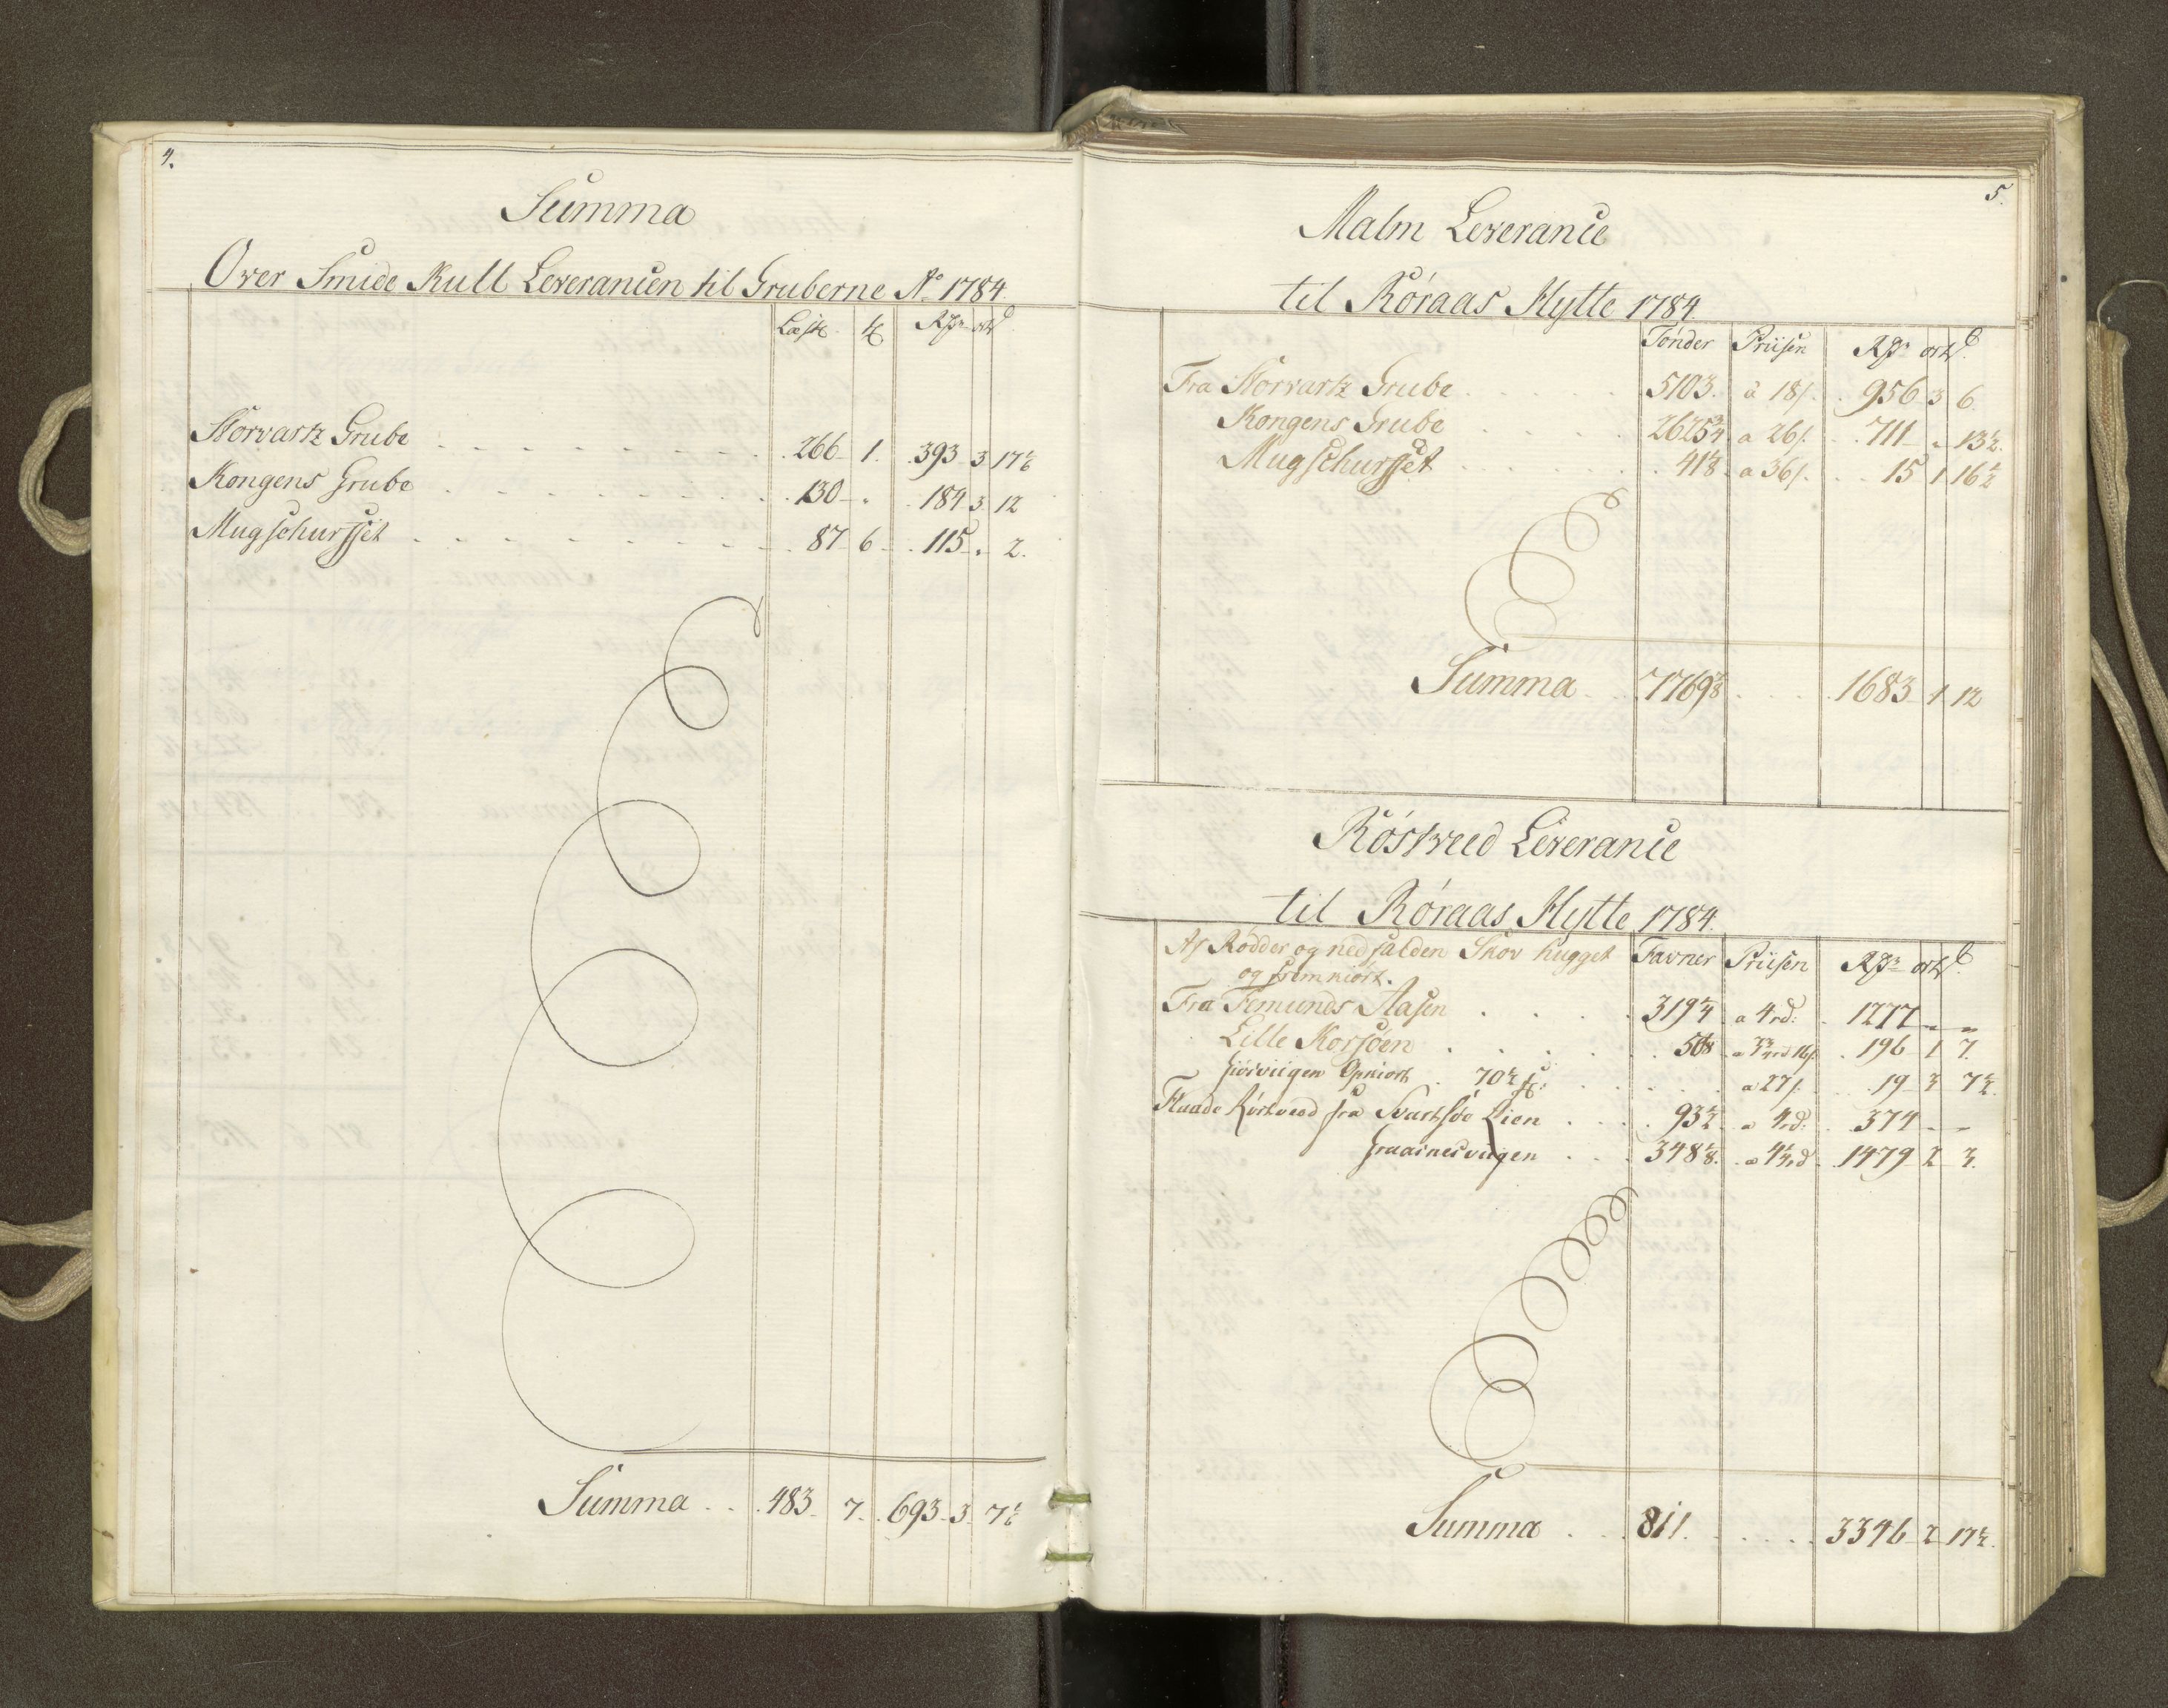 4.
Summa
Over Smide Kull Leverancen til Gruberne Ao 1784.
Læster tr Rdr ort s
Storvartz Grube 266 1. 393 3 17½
Kongens Grube 130 " 184 3 12
Mugschurffet 87 6 115 " 2.
Summa 483 7 693 3 7½
5.
Malm Leverance
til Röraas Hytte 1784.
Tönder Priisen Rdr ort s
Fra Storvartz Grube 5103. a 18s. 956 3 6.
Kongens Grube 2625¾ a 26s. 711 " 13½.
Mugschurffet 41⅛ a 36s. 15 1 16½
Summa 7769⅞ 1683 1 12
Röstveed Leverance
til Röraas Hytte 1784.
Af Rödder og nedfalden Skov hugget
og fremkiört. Favner Priisen Rdr ort s
Fra Femunds Aasen 319¼ a 4rd: 1277 " "
Lille Korsöen a 3¾rd 16s. 196 1 7.
Opkiört 70½ a 27s. 19 3 7½.
Flaade Röstveed fra Svartsöe Lien 93½ a 4rd: 374 " "
Graanesviigen 348⅛. a 4¼rd 1479 2 3.
Summa 811. 3346 2 17½.